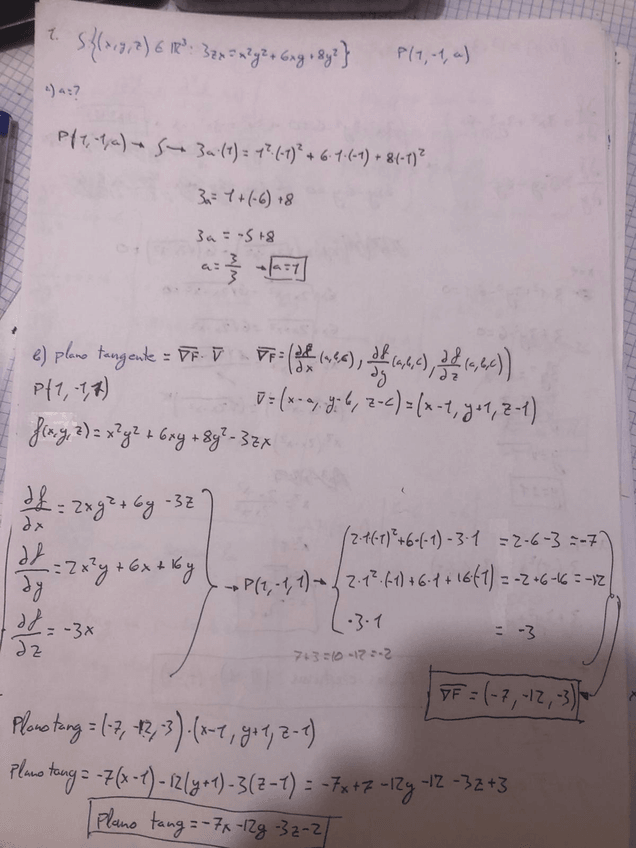 1. S{(x,y,z) ∈ ℝ³: 3zx = x²y² + 6xy + 8y²} P(1,-1,a)
a) a=?
P(1,-1,a) → S → 3a·(1) = 1²·(-1)² + 6·1·(-1) + 8(-1)²
3a = 1+(-6)+8
3a = -5+8
a = 3/3 → a=1
b) plano tangente = ∇F · V ∇F = (∂f/∂x (a,b,c), ∂f/∂y (a,b,c), ∂f/∂z (a,b,c))
P(1,-1,1) V = (x-a, y-b, z-c) = (x-1, y+1, z-1)
f(x,y,z) = x²y² + 6xy + 8y² - 3zx
∂f/∂x = 2xy² + 6y - 3z 2·1(-1)² + 6·(-1) - 3·1 = 2-6-3 = -7
∂f/∂y = 2x²y + 6x + 16y → P(1,-1,1) → 2·1²·(-1) + 6·1 + 16·(-1) = -2+6-16 = -12
∂f/∂z = -3x -3·1 = -3
7+3=10-12=-2
∇F = (-7, -12, -3)
Plano tang = (-7, -12, -3)·(x-1, y+1, z-1)
Plano tang = -7(x-1) -12(y+1) -3(z-1) = -7x+7 -12y -12 -3z+3
Plano tang = -7x -12y -3z -2